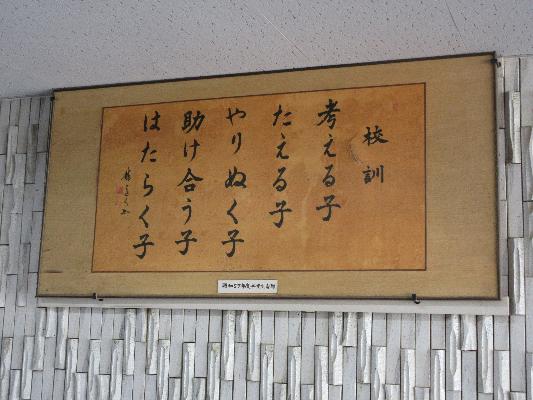 校訓
考える子
たえる子
やりぬく子
助け合う子
はたらく子